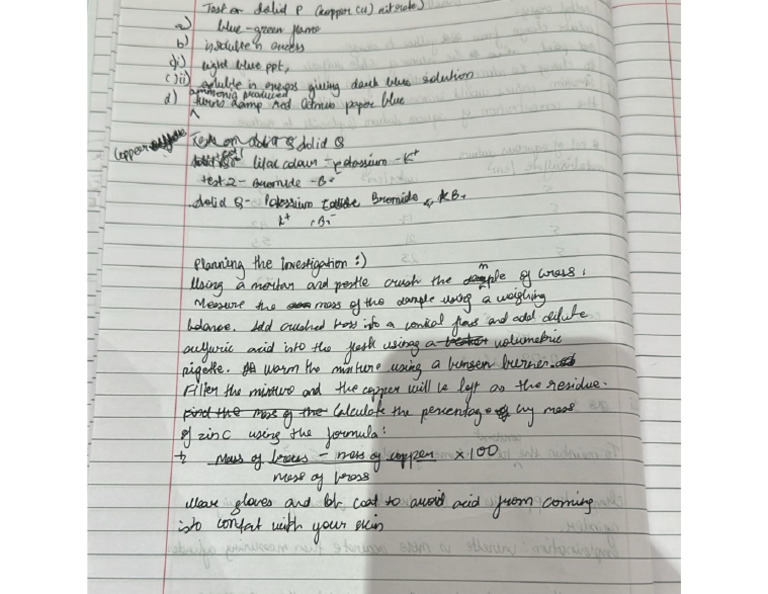 Test on Solid P (copper (II) nitrate)
a) blue-green flame
b) insoluble in excess
c)i) light blue ppt,
(c)ii) soluble in excess giving dark blue solution
ammonia produced
d) turns damp red litmus paper blue
Copper
Tests on Solid Q
lilac colour - potassium - K+
test 2 - Bromide - Br
Solid Q - Potassium Bromide KBr
K+ , Br-
Planning the Investigation :)
Using a mortar and pestle crush the sample of brass.
Measure the mass of the sample using a weighing
balance. Add crushed brass into a conical flask and add dilute
sulfuric acid into the flask using a volumetric
pipette. Warm the mixture using a bunsen burner.
Filter the mixture and the copper will be left as the residue.
Calculate the percentage by mass
of zinc using the formula:
mass of brass - mass of copper x 100
mass of brass
Wear gloves and lab coat to avoid acid from coming
into contact with your skin